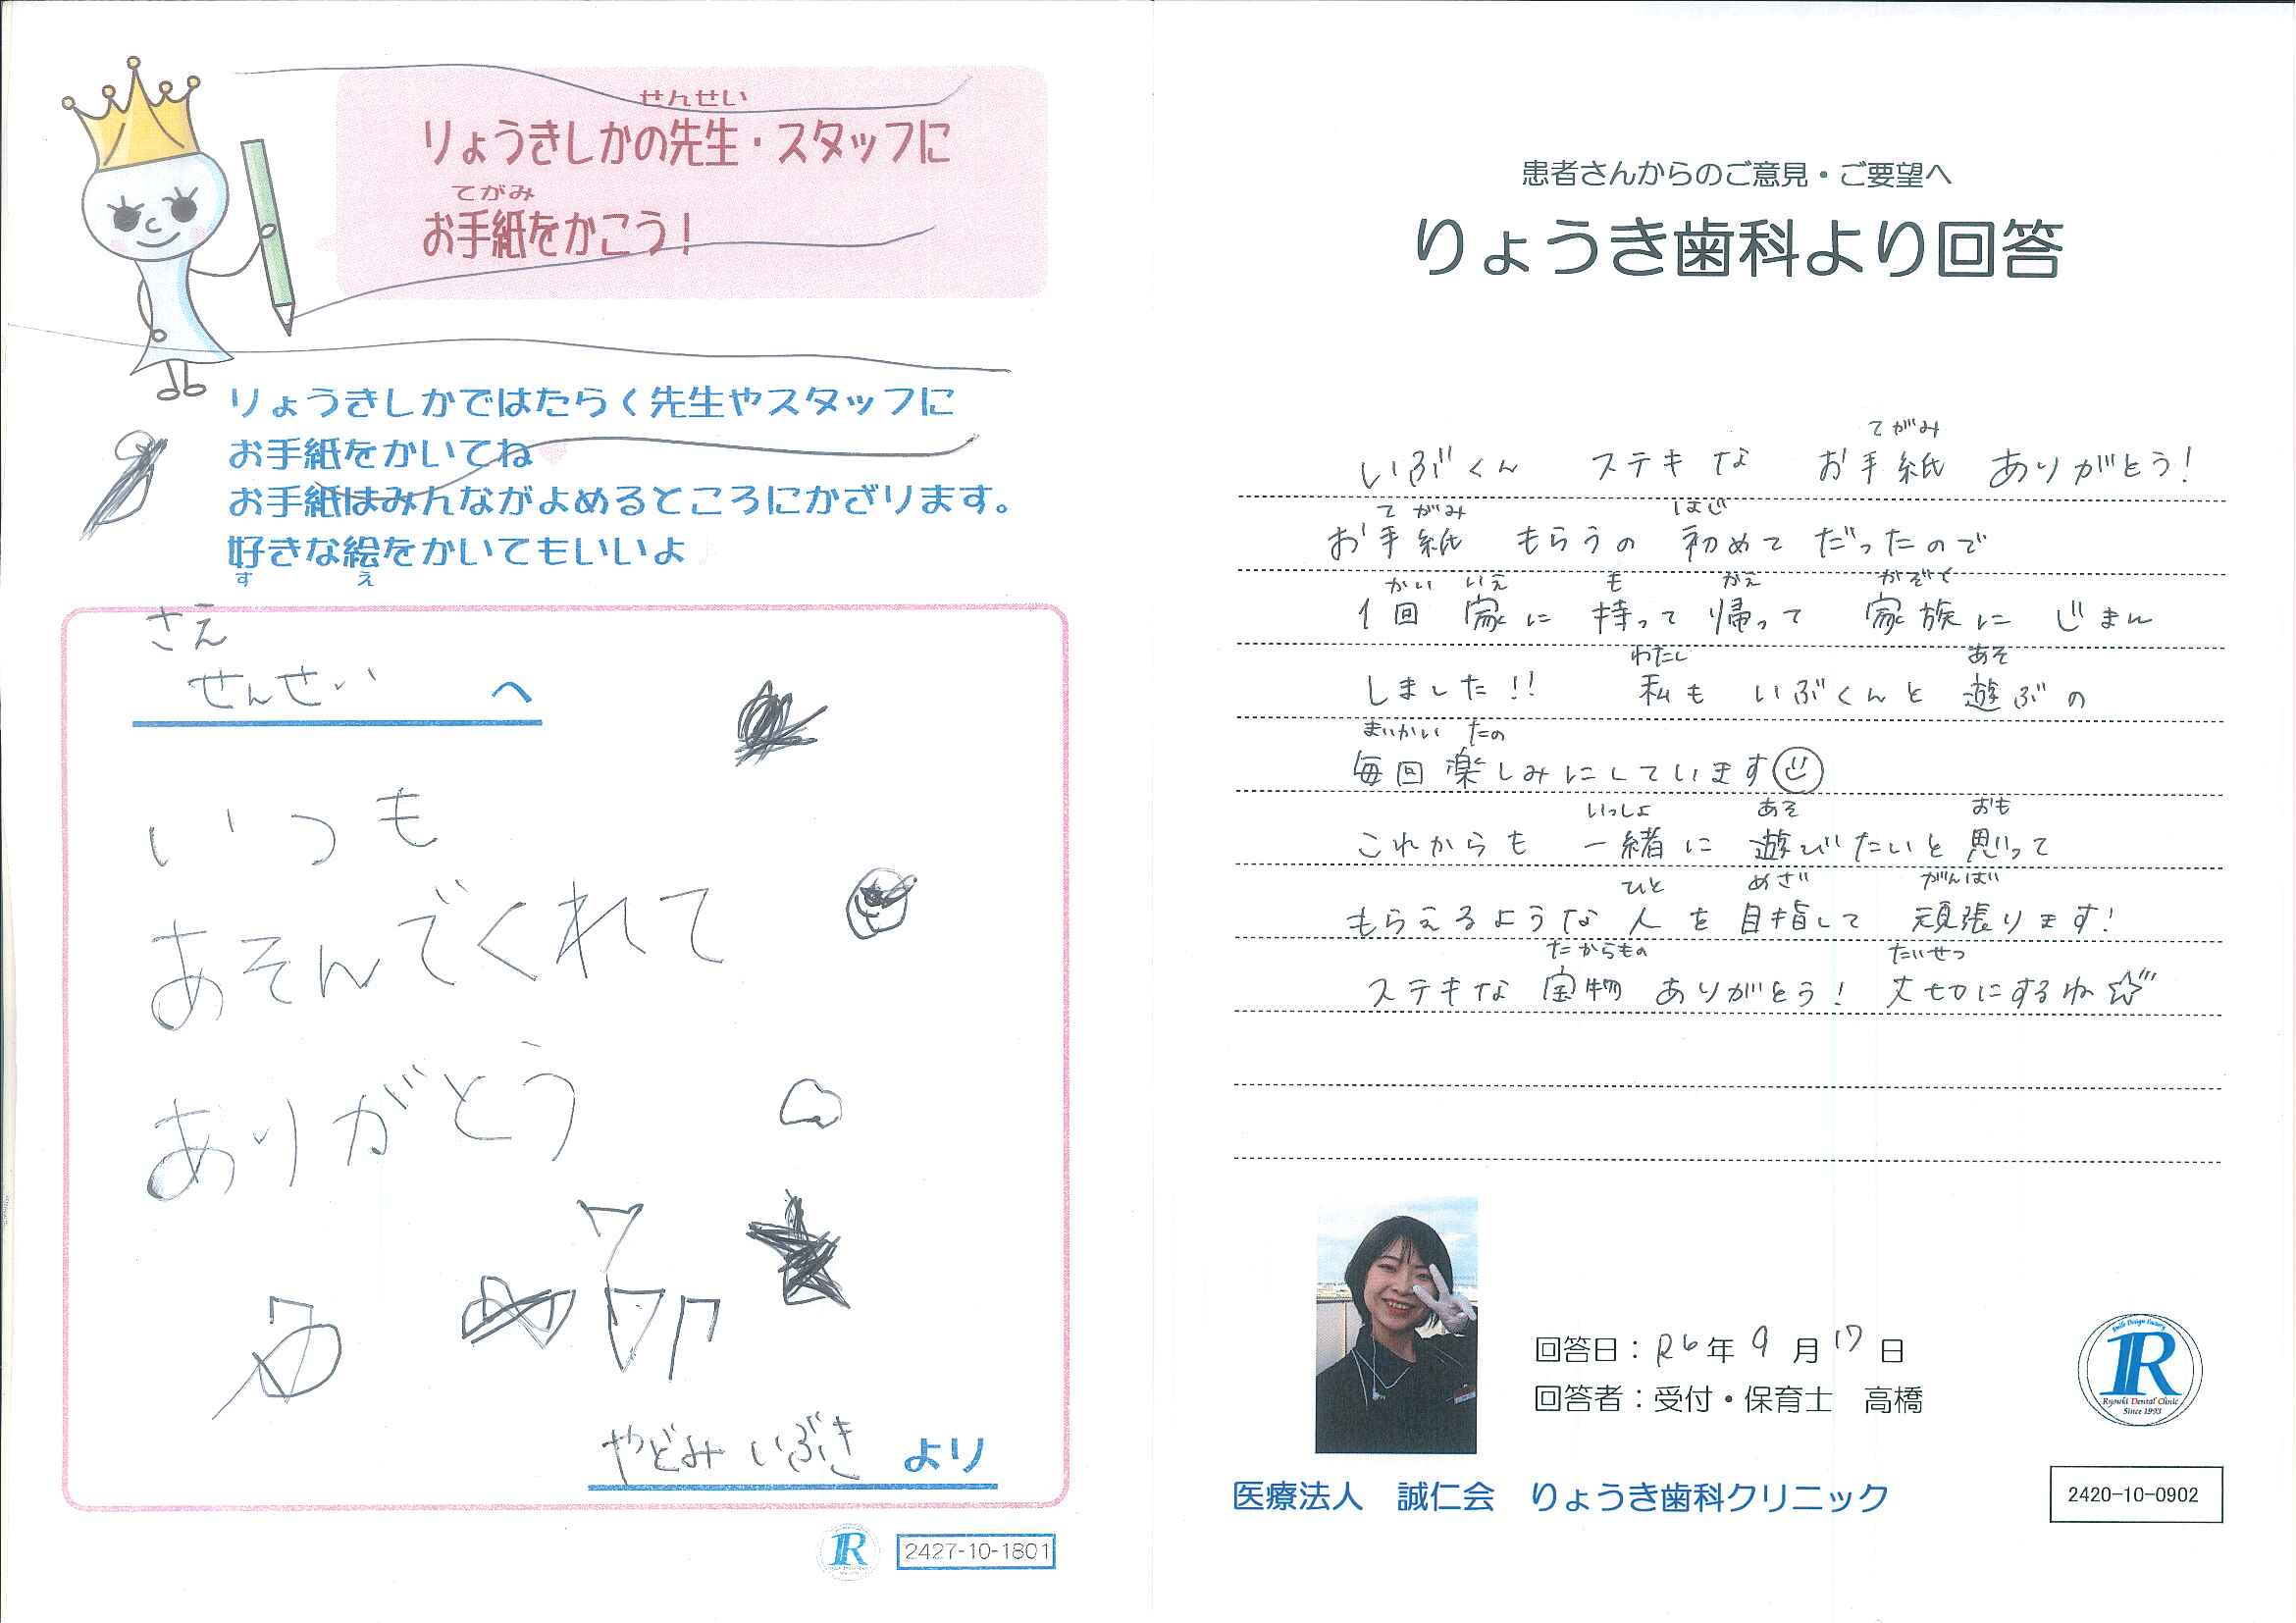 せんせい
りょうきしかの先生・スタッフに
てがみ
お手紙をかこう！
りょうきしかではたらく先生やスタッフに
お手紙をかいてね
お手紙はみんながよめるところにかざります。
好きな絵をかいてもいいよ
す え
さえ
せんせい へ
いつも
あそんでくれて
ありがとう
やどみ いぶき より
R
2427-10-1801
患者さんからのご意見・ご要望へ
りょうき歯科より回答
てがみ
いぶくん ステキな お手紙 ありがとう！
てがみ はじ
お手紙 もらうの 初めて だったので
かい いえ も かえ かぞく
1回 家に 持って 帰って 家族に じまん
わたし あそ
しました!! 私も いぶくんと 遊ぶの
まいかい たの
毎回 楽しみにしています
いっしょ あそ おも
これからも 一緒に 遊びたいと 思って
ひと めざ がんば
もらえるような 人 を 目指して 頑張ります！
たからもの たいせつ
ステキな 宝物 ありがとう！ 大切にするね☆
回答日：R6年 9月 17日
回答者：受付・保育士 高橋
Smile Design Factory
R
Ryouki Dental Clinic
Since 1993
医療法人 誠仁会 りょうき歯科クリニック
2420-10-0902